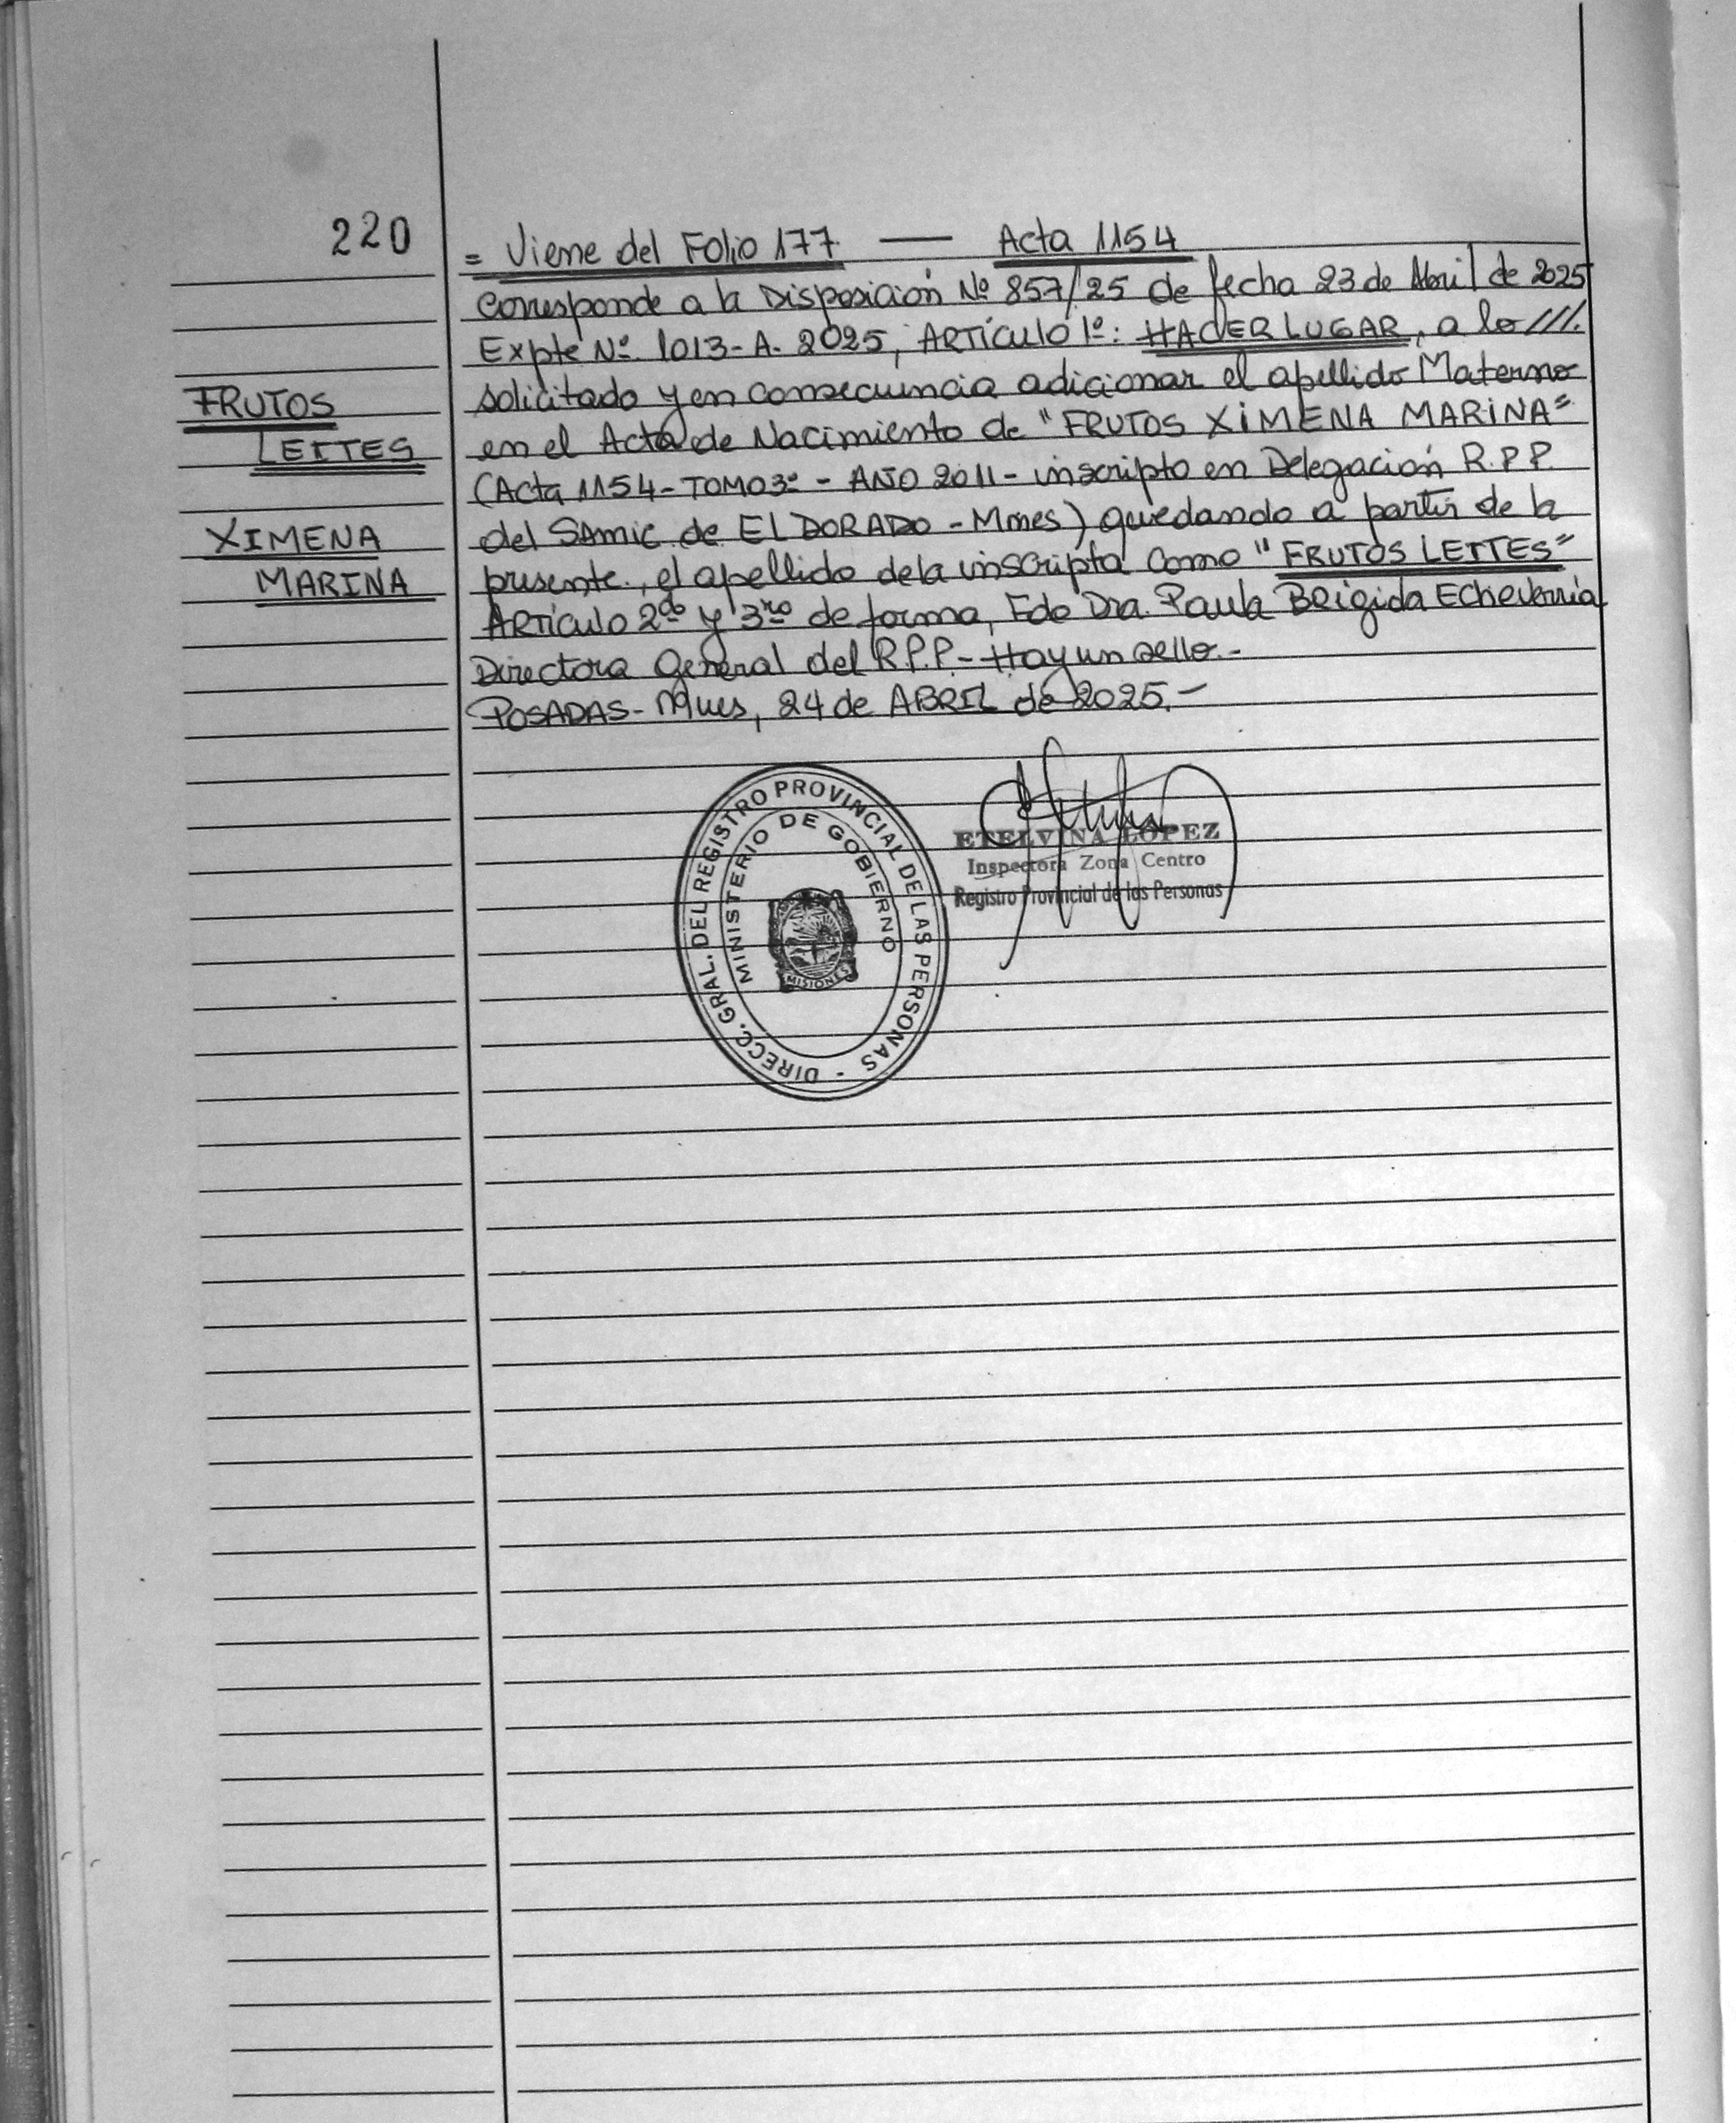 220
= Viene del Folio 177. — Acta 1154
Corresponde a la Disposición Nº 857/25 de fecha 23 de Abril de 2025
Expte Nº. 1013-A-2025, ARTÍCULO 1º: HACER LUGAR, a lo ///.
solicitado y en consecuencia adicionar el apellido Materno
en el Acta de Nacimiento de "FRUTOS XIMENA MARINA"
(Acta 1154-TOMO 3º - AÑO 2011 - inscripto en Delegación R.P.P.
del SAMIC de EL DORADO - Mnes) quedando a partir de la
presente, el apellido de la inscripta como "FRUTOS LEITES"
Artículo 2do y 3ro de forma, Fdo Dra. Paula Brigida Echeverria
Directora General del R.P.P - Hay un sello.-
POSADAS - Mnes, 24 de ABRIL de 2025.-
FRUTOS
LEITES
XIMENA
MARINA
DIRECC. GRAL. DEL REGISTRO PROVINCIAL DE LAS PERSONAS -
MINISTERIO DE GOBIERNO
MISIONES
ETELVINA LOPEZ
Inspectora Zona Centro
Registro Provincial de las Personas